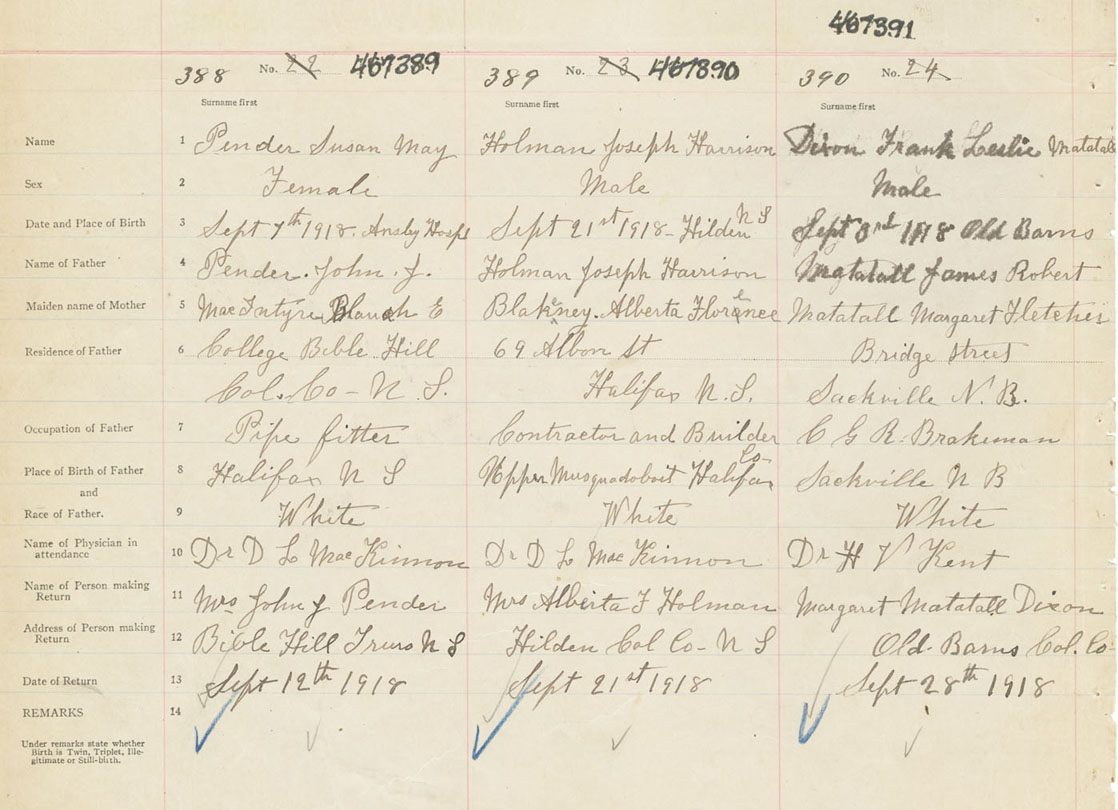 467391
388 No. 22 467389 389 No. 23 467390 390 No. 24
Surname first Surname first Surname first
Name 1 Pender Susan May Holman Joseph Harrison Dixon Frank Leslie Matatall
Sex 2 Female Male Male
Date and Place of Birth 3 Sept 7th 1918. Ansley Hosp Sept 21st 1918 - Hilden N S Sept 3rd 1918 Old Barns
Name of Father 4 Pender. John. J. Holman Joseph Harrison James Robert
Maiden name of Mother 5 MacIntyre E Blakeney. Alberta Florence Matatall Margaret Fletcher
Residence of Father 6 College Bible Hill 69 Albon St Bridge Street
Col. Co - N. S. Halifax N. S. Sackville N. B.
Occupation of Father 7 Pipe fitter Contractor and Builder C G R. Brakeman
Place of Birth of Father 8 Halifax N S Upper Musquodoboit Halifax Co- Sackville N B
and
Race of Father. 9 White White White
Name of Physician in
attendance 10 Dr D L MacKinnon Dr D L MacKinnon Dr H V Kent
Name of Person making
Return 11 Mrs John J Pender Mrs Alberta F Holman Margaret Matatall Dixon
Address of Person making
Return 12 Bible Hill Truro N S Hilden Col Co - N S Old Barns Col. Co-
Date of Return 13 Sept 12th 1918 Sept 21st 1918 Sept 28th 1918
REMARKS 14
Under remarks state whether
Birth is Twin, Triplet, Ille-
gitimate or Still-birth.